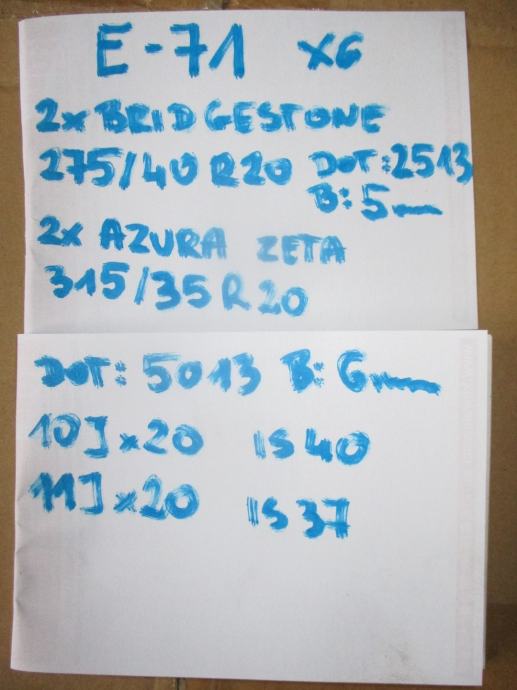 E-71 X6
2x BRIDGESTONE
275/40 R20 DOT:2513
B: 5mm
2x AZURA ZETA
315/35 R20
DOT: 5013 B: 6mm
10J x20 IS 40
11J x20 IS 37